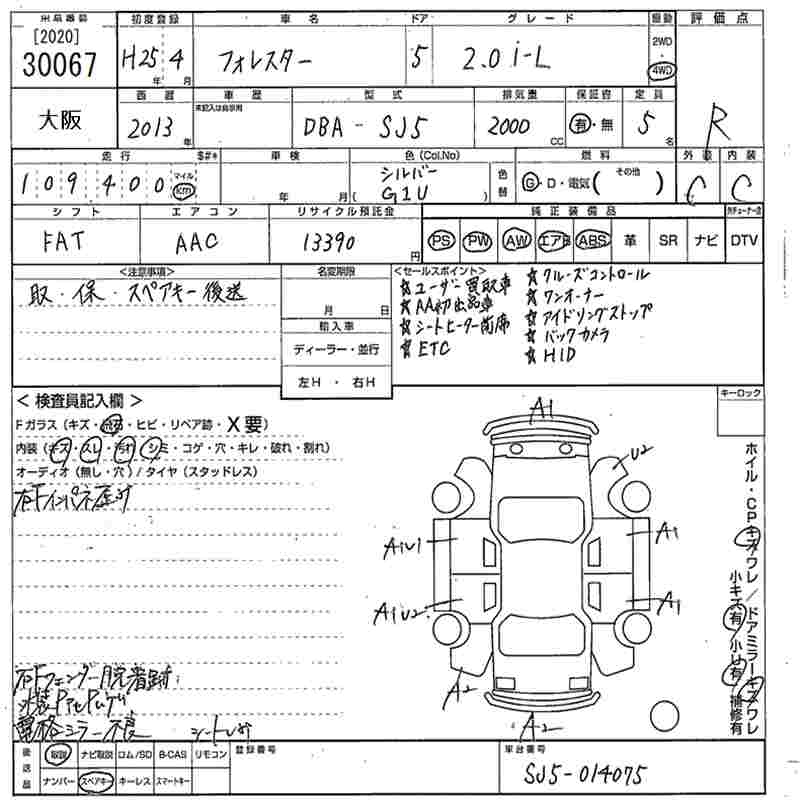 出品番号 初度登録 車名 ドア グレード 駆動 評価点
[2020]
30067 H25年 4月 フォレスター 5 2.0 i-L 2WD・4WD R
大阪 西暦 車歴 型式 排気量 保証書 定員
2013年 未記入は自家用 DBA - SJ5 2000cc 有・無 5名
走行 $#* 車検 色(Col.No) 燃料 外装 内装
109400 マイル km 年 月 シルバー (G1U) 色替 G・D・電気(その他) C C
シフト エアコン リサイクル預託金 純正装備品
FAT AAC 13390円 PS PW AW エアB ABS 革 SR ナビ DTV
<注意事項> 名変期限 <セールスポイント>
取・保・スペアキー後送 月 日
☆ユーザー買取車 ☆クルーズコントロール
☆AA初出品車 ☆ワンオーナー
☆シートヒーター前席 ☆アイドリングストップ
☆ETC ☆バックカメラ
☆HID
輸入車
ディーラー・並行
左H・右H
<検査員記入欄> キーロック
Fガラス(キズ・飛石・ヒビ・リペア跡・X要)
内装(キズ・スレ・汚れ・シミ・コゲ・穴・キレ・破れ・割れ)
オーディオ(無し・穴)/タイヤ(スタッドレス)
右Fインパネ歪み
右Fフェンダー脱着跡
A1
U2
A1U1 A1
A1U2 A1
A2
A2
ホイル・CPキズワレ/ドアミラーキズワレ
小キズ有/小U有/補修有
後送品 取説 ナビ取説 ロム/SD B-CAS リモコン 登録番号 車台番号
ナンバー スペアキー キーレス スマートキー SJ5-014075